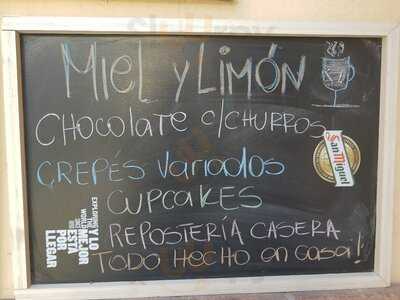 MIEL Y LIMÓN
CHOCOLATE c/CHURROS
CREPÉS VARIADOS
CUPCAKES
REPOSTERÍA CASERA
TODO HECHO en CASA!
San Miguel
Y LO
MEJOR
ESTÁ
POR
LLEGAR